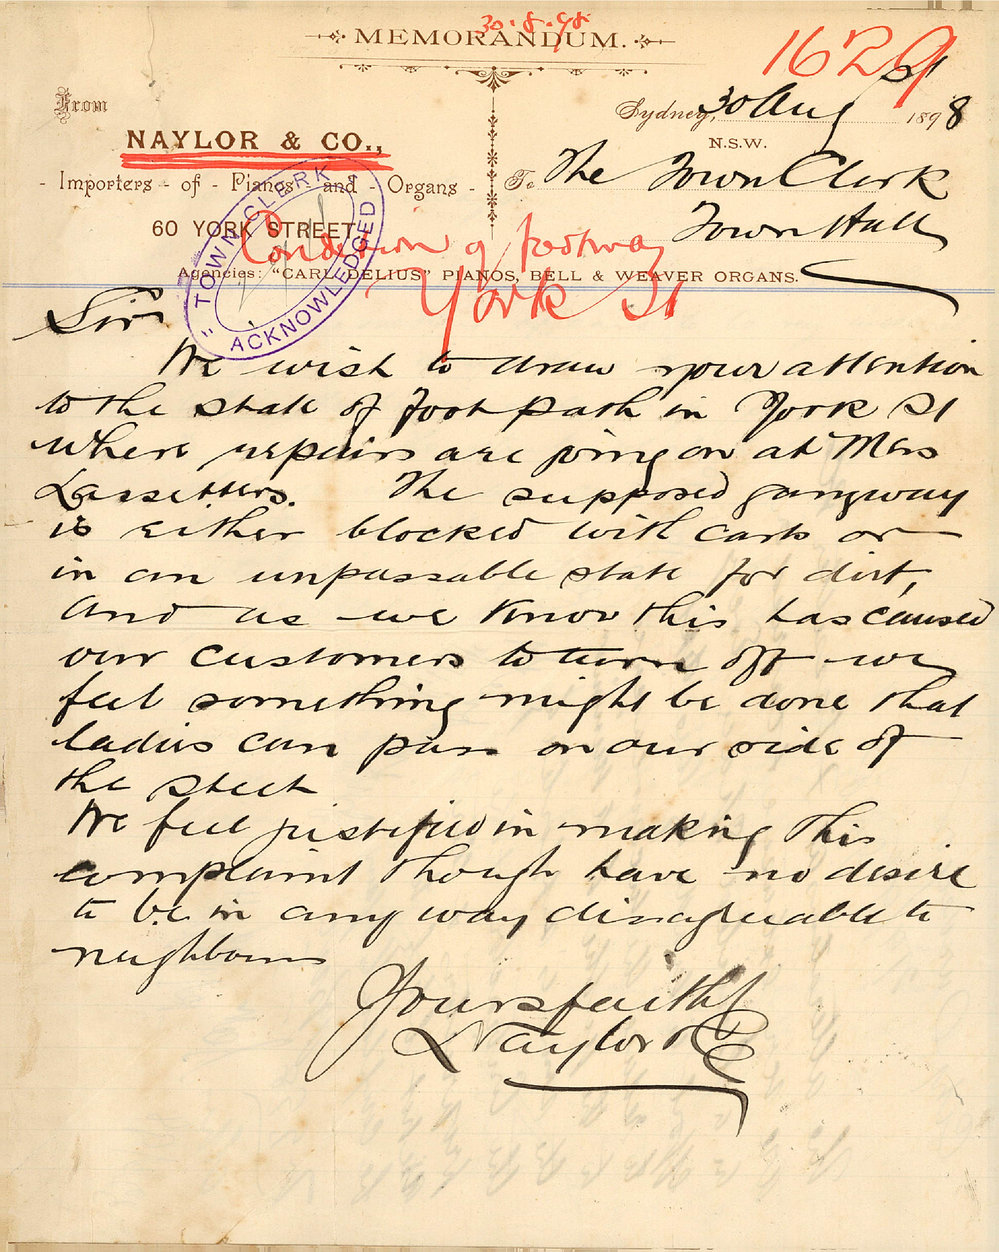 30.8.98
MEMORANDUM.
1629
From
Sydney, 30 Aug 1898
N.S.W.
NAYLOR & CO.,
Importers - of - Pianos - and - Organs -
To The Town Clerk
Town Hall
60 YORK STREET,
Condition of footway
Agencies: "CARL DELIUS" PIANOS, BELL & WEAVER ORGANS.
York St
"TOWN CLERK"
ACKNOWLEDGED
Sir
We wish to draw your attention
to the state of footpath in York St
where repairs are going on at Mess
Lassetters. The supposed gangway
is either blocked with carts or
in an unpassable state for dirt,
and as we know this has caused
our customers to turn off we
feel something might be done that
ladies can pass on our side of
the street
We feel justified in making this
complaint though have no desire
to be in any way disagreeable to
neighbours
Yours faithf
Naylor & Co